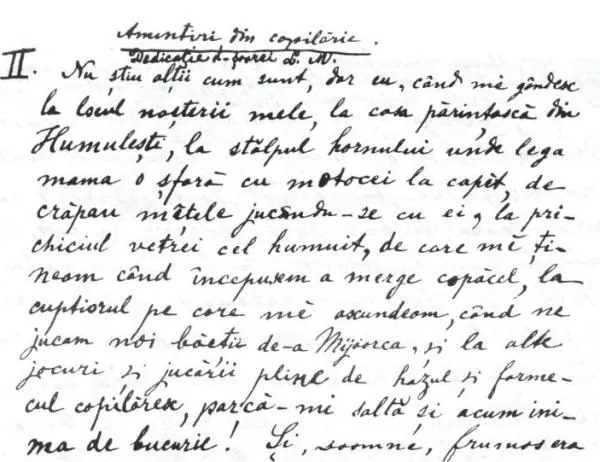 Amintiri din copilărie.
Dedicație d-șoarei L. M.
II. Nu știu alții cum sunt, dar eu, când mĕ gândesc
la locul nașterii mele, la casa părintéscă din
Humulești, la stâlpul hornului unde lega
mama o sfară cu motocei la capĕt, de
crăpau mâțele jucându-se cu ei, la pri-
chiciul vetrei cel humuit, de care mĕ ți-
neam când începusem a merge copăcel, la
cuptiorul pe care mĕ ascundeam, când ne
jucam noi băeții de-a Mijoarca, și la alte
jocuri și jucării pline de hazul și farme-
cul copilăresc, parcă-mi saltă și acum ini-
ma de bucurie! Și, doamne, frumos era